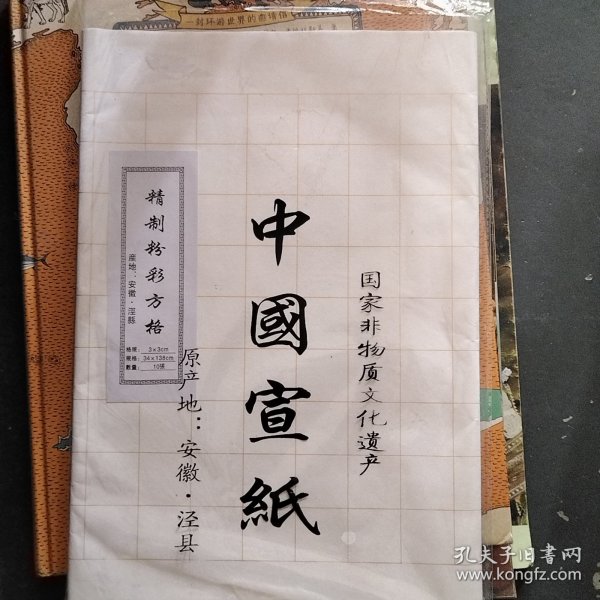 一封环游世界的邀请信
精制粉彩方格
産地：安徽·涇縣
格规：3×3cm
规格：34×138cm
数量：10張
中國宣紙
国家非物质文化遗产
原产地：安徽·泾县
孔夫子旧书网
www.kongfz.com